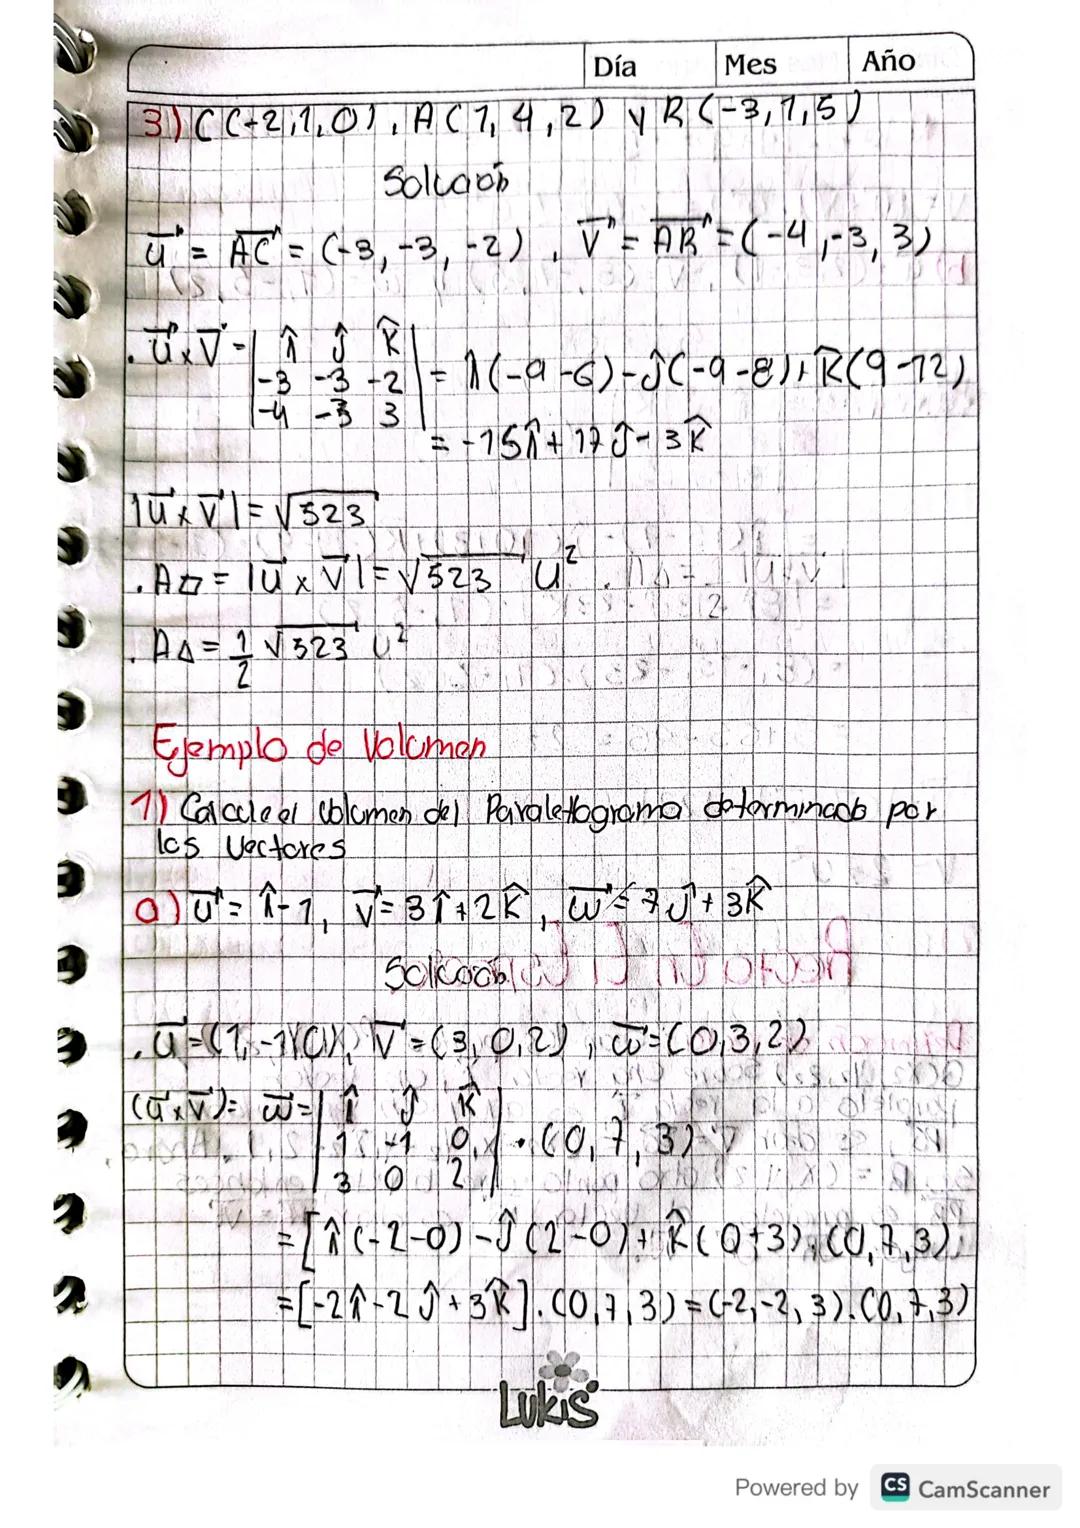 Día Mes Año
3) C(-2,1,0), A(1,4,2) y R(-3,1,5)
Solución
u⃗ = AC⃗ = (-3, -3, -2), v⃗ = AR⃗ = (-4, -3, 3)
. u⃗ x v⃗ = | î ĵ k̂ | = î(-9-6) - ĵ(-9-8) + k̂(9-12)
| -3 -3 -2 |
| -4 -3 3 |
= -15î + 17ĵ - 3k̂
|u⃗ x v⃗| = √523
. A▱ = |u⃗ x v⃗| = √523 u²
. A△ = 1/2 √523 u²
Ejemplo de Volumen
1) Calcule el volumen del Paralelograma determinado por
los vectores
a) u⃗ = î - 1, v⃗ = 3î + 2k̂, w⃗ = 7ĵ + 3k̂
Solución
. u⃗ = (1, -1, 0), v⃗ = (3, 0, 2), w⃗ = (0, 3, 2)
(u⃗ x v⃗) = w⃗ = | î ĵ k̂ |
| 1 -1 0 | · (0, 7, 3)
| 3 0 2 |
= [î(-2-0) - ĵ(2-0) + k̂(0+3)·(0,7,3)
= [-2î - 2ĵ + 3k̂]·(0,7,3) = (-2,-2,3)·(0,7,3)
Lukis
Powered by CS CamScanner